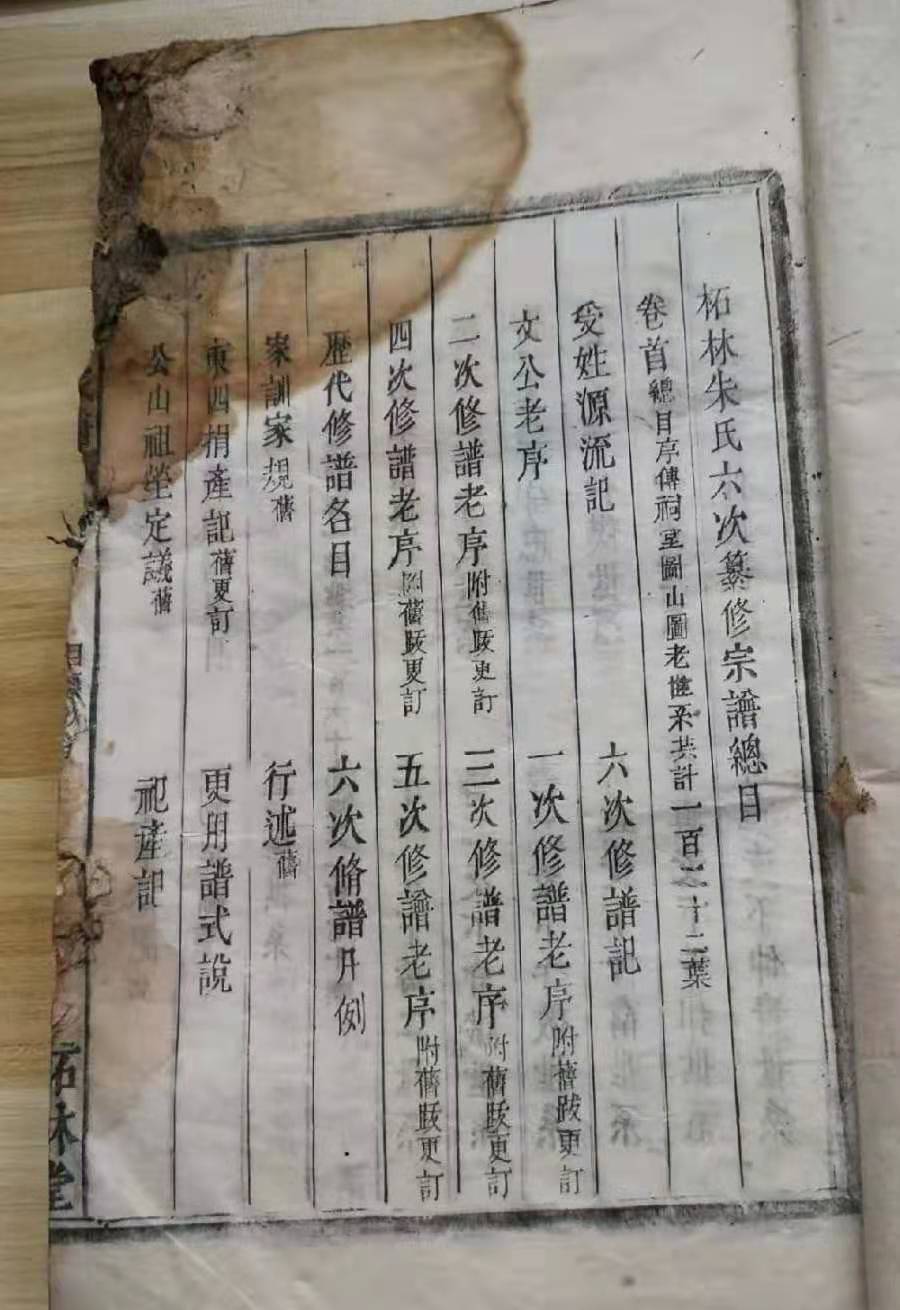 柘林朱氏六次纂修宗譜總目
卷首總目序傳祠堂圖山圖老世系共計一百二十二葉
受姓源流記 六次修譜記
文公老序 一次修譜老序附舊跋更訂
二次修譜老序附舊跋更訂 三次修譜老序附舊跋更訂
四次修譜老序附舊跋更訂 五次修譜老序附舊跋更訂
歷代修譜名目 六次脩譜凡例
家訓家規舊 行述舊
東四捐產記舊更訂 更用譜式說
公山祖塋定議舊 祀產記
柘林堂